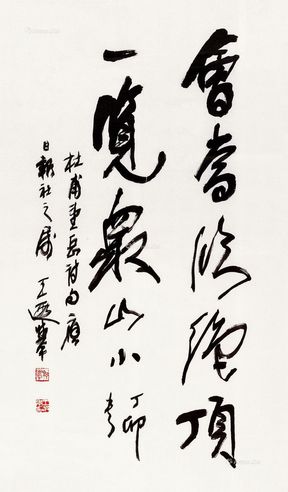 會當凌絕頂
一覽衆山小 丁卯
杜甫望岳詩句應
日報社之属 王遐舉